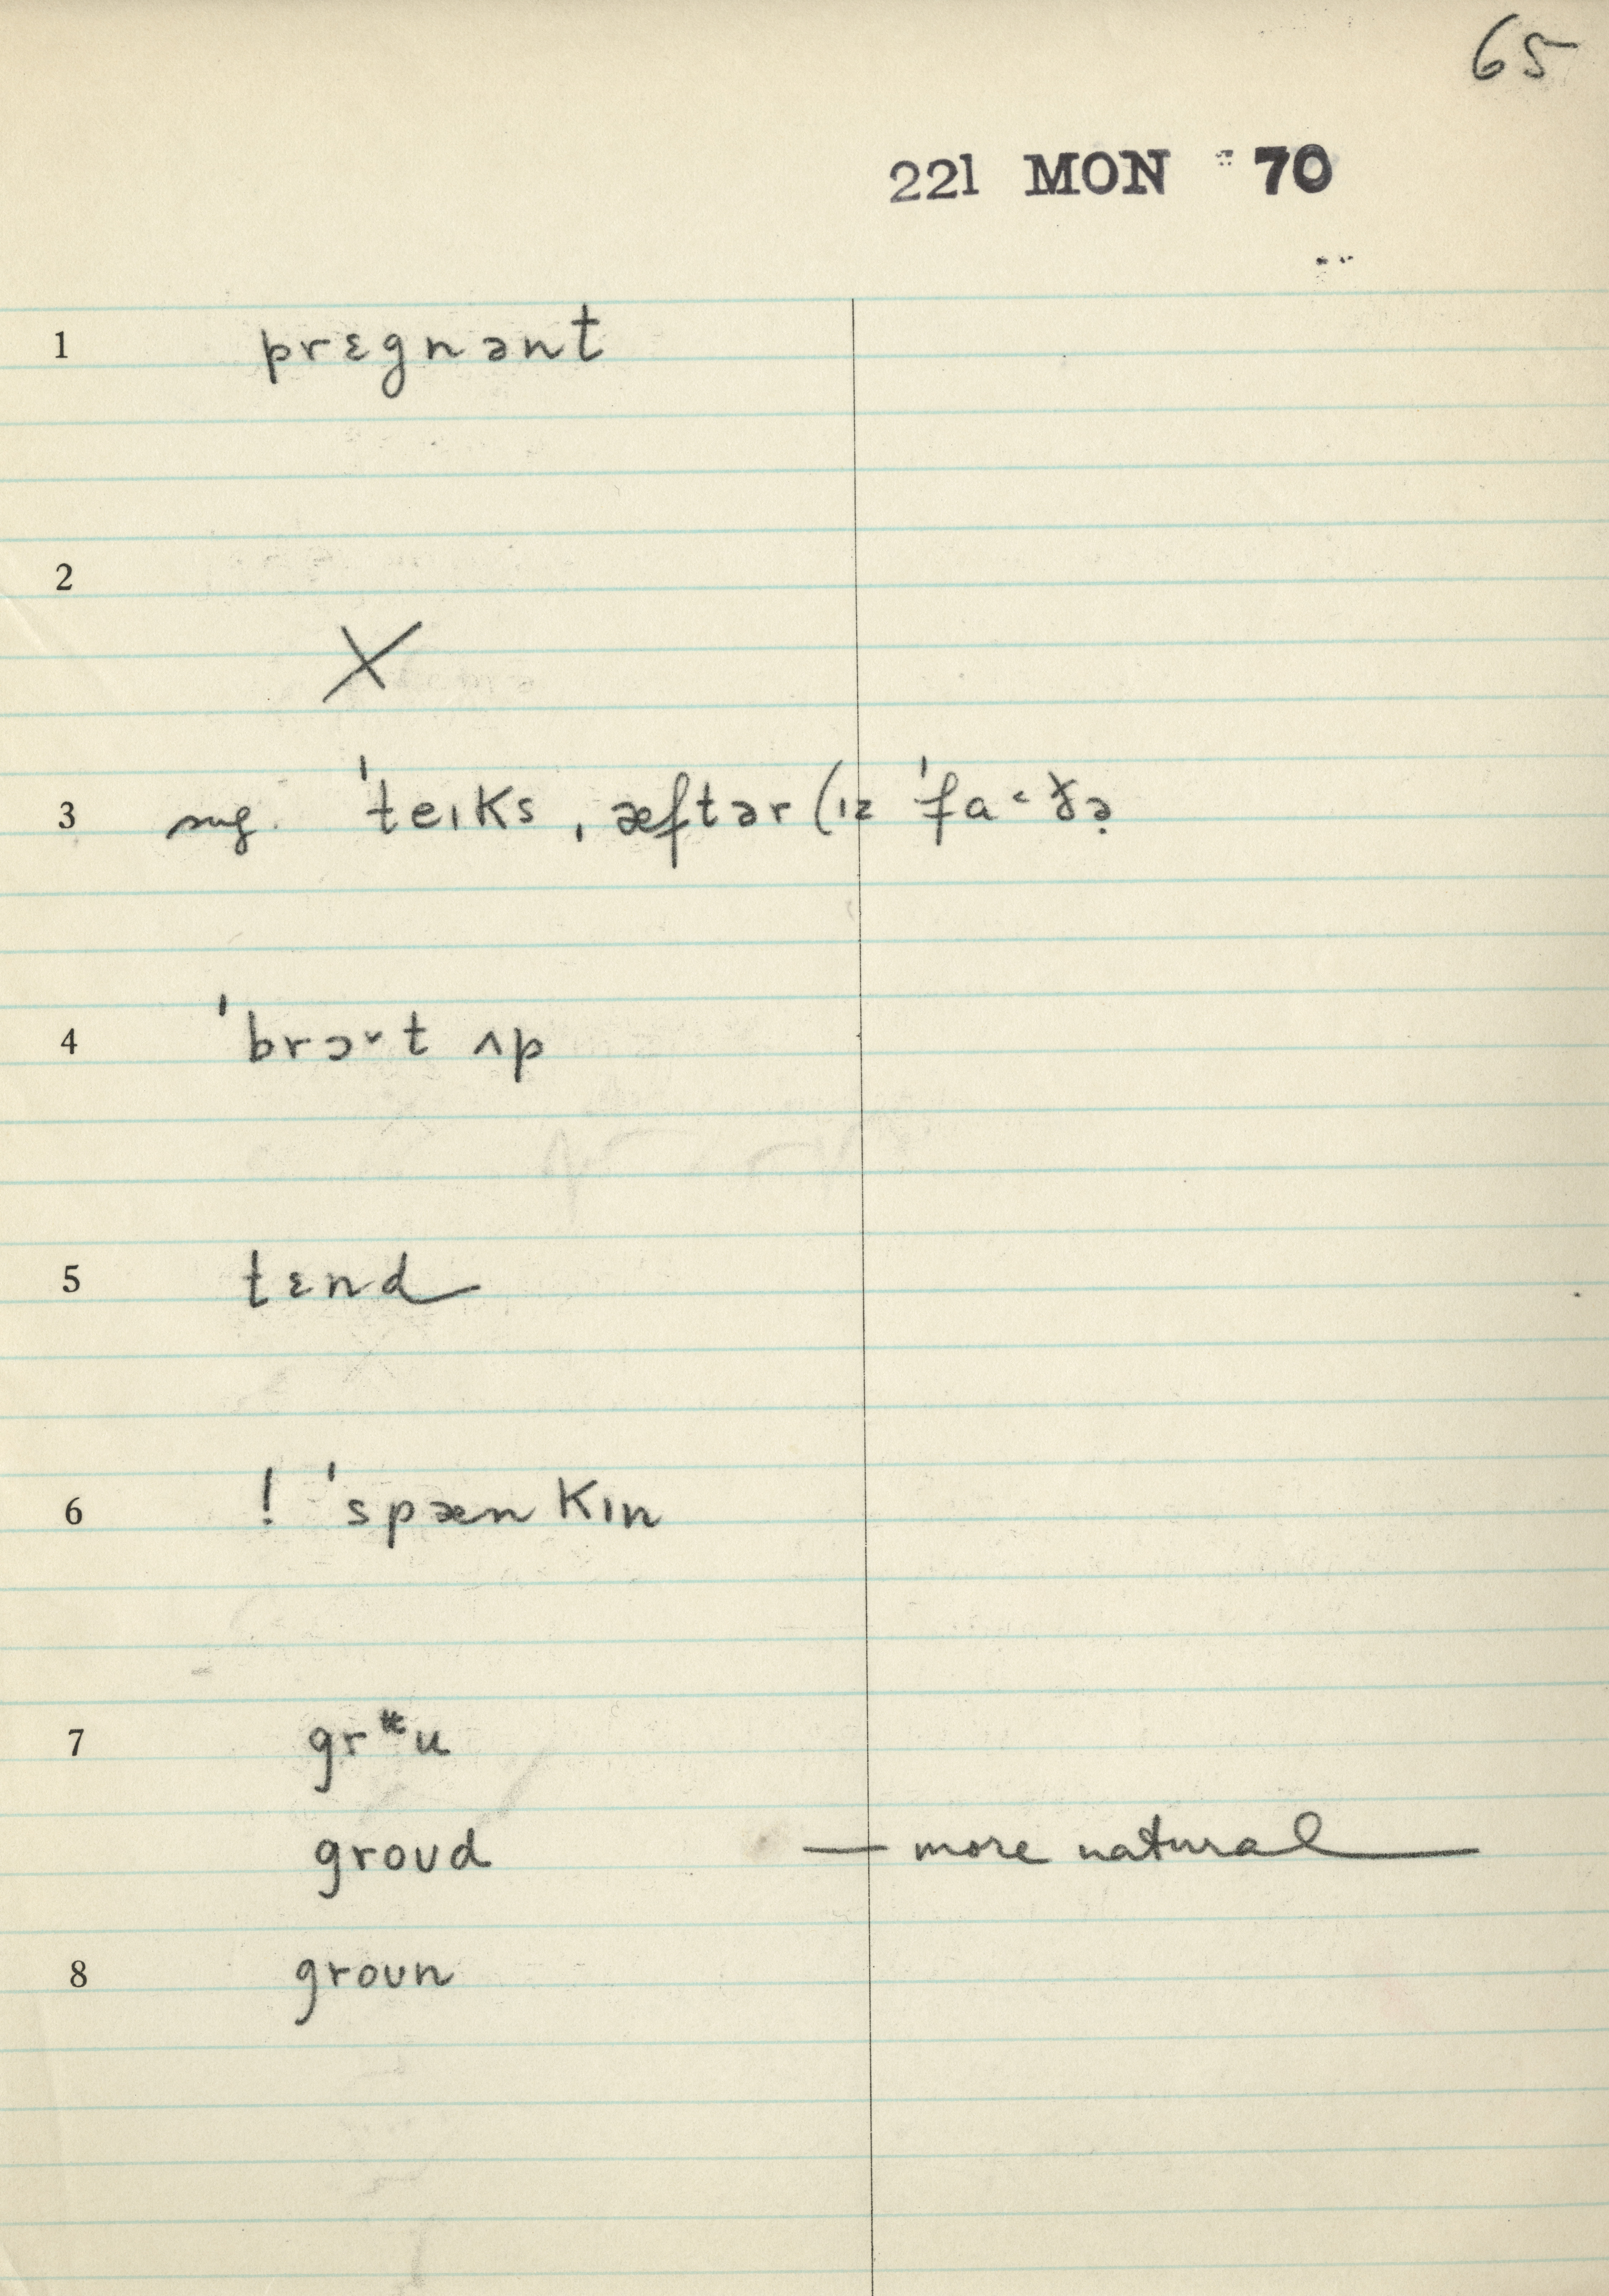 65
221 MON 70
1 prɛgnənt
2 X
3 sug. ˈteɪks ˌæftər (ɪz ˈfa˂ðə̣
4 ˈbrɔ˅t ʌp
5 tɛnd
6 ! ˈspænkɪn
7 gr*u
groʊd — more natural —
8 groʊn